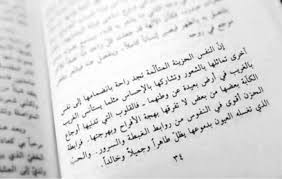 إنّ النفس الحزينة المتألمة تجد راحة بانضمامها إلى نفس
أخرى تماثلها بالشعور وتشاركها بالإحساس مثلما يستأنس الغريب
بالغريب في أرض بعيدة عن وطنهما. فالقلوب التي تدنيها أوجاع
الكآبة بعضها من بعض لا تفرقها بهجة الأفراح وبهرجتها. فرابطة
الحزن أقوى في النفوس من روابط الغبطة والسرور. والحب
الذي تغسله العيون بدموعها يظل طاهراً وجميلاً وخالداً.
٣٤